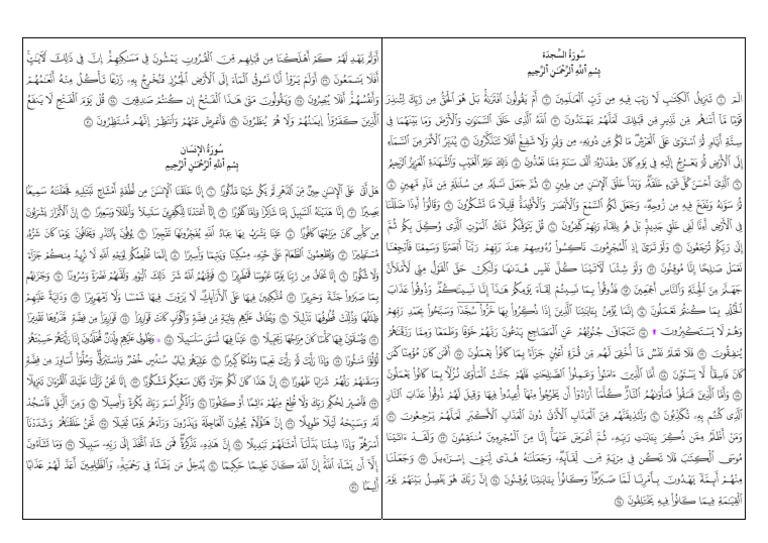 سُورَةُ السَّجْدَة
بِسْمِ اللَّهِ الرَّحْمَٰنِ الرَّحِيمِ
الٓمٓ ۝١ تَنزِيلُ الْكِتَٰبِ لَا رَيْبَ فِيهِ مِن رَّبِّ الْعَٰلَمِينَ ۝٢ أَمْ يَقُولُونَ افْتَرَىٰهُ بَلْ هُوَ الْحَقُّ مِن رَّبِّكَ لِتُنذِرَ
قَوْمًا مَّآ أَتَىٰهُم مِّن نَّذِيرٍ مِّن قَبْلِكَ لَعَلَّهُمْ يَهْتَدُونَ ۝٣ اللَّهُ الَّذِى خَلَقَ السَّمَٰوَٰتِ وَالْأَرْضَ وَمَا بَيْنَهُمَا فِى
سِتَّةِ أَيَّامٍ ثُمَّ اسْتَوَىٰ عَلَى الْعَرْشِ مَا لَكُم مِّن دُونِهِۦ مِن وَلِىٍّ وَلَا شَفِيعٍ أَفَلَا تَتَذَكَّرُونَ ۝٤ يُدَبِّرُ الْأَمْرَ مِنَ السَّمَآءِ
إِلَى الْأَرْضِ ثُمَّ يَعْرُجُ إِلَيْهِ فِى يَوْمٍ كَانَ مِقْدَارُهُۥٓ أَلْفَ سَنَةٍ مِّمَّا تَعُدُّونَ ۝٥ ذَٰلِكَ عَٰلِمُ الْغَيْبِ وَالشَّهَٰدَةِ الْعَزِيزُ الرَّحِيمُ
۝٦ الَّذِىٓ أَحْسَنَ كُلَّ شَىْءٍ خَلَقَهُۥ وَبَدَأَ خَلْقَ الْإِنسَٰنِ مِن طِينٍ ۝٧ ثُمَّ جَعَلَ نَسْلَهُۥ مِن سُلَٰلَةٍ مِّن مَّآءٍ مَّهِينٍ ۝٨
ثُمَّ سَوَّىٰهُ وَنَفَخَ فِيهِ مِن رُّوحِهِۦ وَجَعَلَ لَكُمُ السَّمْعَ وَالْأَبْصَٰرَ وَالْأَفْـِٔدَةَ قَلِيلًا مَّا تَشْكُرُونَ ۝٩ وَقَالُوٓا۟ أَءِذَا ضَلَلْنَا
فِى الْأَرْضِ أَءِنَّا لَفِى خَلْقٍ جَدِيدٍ بَلْ هُم بِلِقَآءِ رَبِّهِمْ كَٰفِرُونَ ۝١٠ قُلْ يَتَوَفَّىٰكُم مَّلَكُ الْمَوْتِ الَّذِى وُكِّلَ بِكُمْ ثُمَّ
إِلَىٰ رَبِّكُمْ تُرْجَعُونَ ۝١١ وَلَوْ تَرَىٰٓ إِذِ الْمُجْرِمُونَ نَاكِسُوا۟ رُءُوسِهِمْ عِندَ رَبِّهِمْ رَبَّنَآ أَبْصَرْنَا وَسَمِعْنَا فَارْجِعْنَا
نَعْمَلْ صَٰلِحًا إِنَّا مُوقِنُونَ ۝١٢ وَلَوْ شِئْنَا لَءَاتَيْنَا كُلَّ نَفْسٍ هُدَىٰهَا وَلَٰكِنْ حَقَّ الْقَوْلُ مِنِّى لَأَمْلَأَنَّ
جَهَنَّمَ مِنَ الْجِنَّةِ وَالنَّاسِ أَجْمَعِينَ ۝١٣ فَذُوقُوا۟ بِمَا نَسِيتُمْ لِقَآءَ يَوْمِكُمْ هَٰذَآ إِنَّا نَسِينَٰكُمْ وَذُوقُوا۟ عَذَابَ
الْخُلْدِ بِمَا كُنتُمْ تَعْمَلُونَ ۝١٤ إِنَّمَا يُؤْمِنُ بِـَٔايَٰتِنَا الَّذِينَ إِذَا ذُكِّرُوا۟ بِهَا خَرُّوا۟ سُجَّدًا وَسَبَّحُوا۟ بِحَمْدِ رَبِّهِمْ
وَهُمْ لَا يَسْتَكْبِرُونَ ۩ ۝١٥ تَتَجَافَىٰ جُنُوبُهُمْ عَنِ الْمَضَاجِعِ يَدْعُونَ رَبَّهُمْ خَوْفًا وَطَمَعًا وَمِمَّا رَزَقْنَٰهُمْ
يُنفِقُونَ ۝١٦ فَلَا تَعْلَمُ نَفْسٌ مَّآ أُخْفِىَ لَهُم مِّن قُرَّةِ أَعْيُنٍ جَزَآءًۢ بِمَا كَانُوا۟ يَعْمَلُونَ ۝١٧ أَفَمَن كَانَ مُؤْمِنًا كَمَن
كَانَ فَاسِقًا لَّا يَسْتَوُۥنَ ۝١٨ أَمَّا الَّذِينَ ءَامَنُوا۟ وَعَمِلُوا۟ الصَّٰلِحَٰتِ فَلَهُمْ جَنَّٰتُ الْمَأْوَىٰ نُزُلًۢا بِمَا كَانُوا۟ يَعْمَلُونَ
۝١٩ وَأَمَّا الَّذِينَ فَسَقُوا۟ فَمَأْوَىٰهُمُ النَّارُ كُلَّمَآ أَرَادُوٓا۟ أَن يَخْرُجُوا۟ مِنْهَآ أُعِيدُوا۟ فِيهَا وَقِيلَ لَهُمْ ذُوقُوا۟ عَذَابَ النَّارِ
الَّذِى كُنتُم بِهِۦ تُكَذِّبُونَ ۝٢٠ وَلَنُذِيقَنَّهُم مِّنَ الْعَذَابِ الْأَدْنَىٰ دُونَ الْعَذَابِ الْأَكْبَرِ لَعَلَّهُمْ يَرْجِعُونَ ۝٢١
وَمَنْ أَظْلَمُ مِمَّن ذُكِّرَ بِـَٔايَٰتِ رَبِّهِۦ ثُمَّ أَعْرَضَ عَنْهَآ إِنَّا مِنَ الْمُجْرِمِينَ مُنتَقِمُونَ ۝٢٢ وَلَقَدْ ءَاتَيْنَا
مُوسَى الْكِتَٰبَ فَلَا تَكُن فِى مِرْيَةٍ مِّن لِّقَآئِهِۦ وَجَعَلْنَٰهُ هُدًى لِّبَنِىٓ إِسْرَٰٓءِيلَ ۝٢٣ وَجَعَلْنَا
مِنْهُمْ أَئِمَّةً يَهْدُونَ بِأَمْرِنَا لَمَّا صَبَرُوا۟ وَكَانُوا۟ بِـَٔايَٰتِنَا يُوقِنُونَ ۝٢٤ إِنَّ رَبَّكَ هُوَ يَفْصِلُ بَيْنَهُمْ يَوْمَ
الْقِيَٰمَةِ فِيمَا كَانُوا۟ فِيهِ يَخْتَلِفُونَ ۝٢٥
أَوَلَمْ يَهْدِ لَهُمْ كَمْ أَهْلَكْنَا مِن قَبْلِهِم مِّنَ الْقُرُونِ يَمْشُونَ فِى مَسَٰكِنِهِمْ إِنَّ فِى ذَٰلِكَ لَءَايَٰتٍ
أَفَلَا يَسْمَعُونَ ۝٢٦ أَوَلَمْ يَرَوْا۟ أَنَّا نَسُوقُ الْمَآءَ إِلَى الْأَرْضِ الْجُرُزِ فَنُخْرِجُ بِهِۦ زَرْعًا تَأْكُلُ مِنْهُ أَنْعَٰمُهُمْ
وَأَنفُسُهُمْ أَفَلَا يُبْصِرُونَ ۝٢٧ وَيَقُولُونَ مَتَىٰ هَٰذَا الْفَتْحُ إِن كُنتُمْ صَٰدِقِينَ ۝٢٨ قُلْ يَوْمَ الْفَتْحِ لَا يَنفَعُ
الَّذِينَ كَفَرُوٓا۟ إِيمَٰنُهُمْ وَلَا هُمْ يُنظَرُونَ ۝٢٩ فَأَعْرِضْ عَنْهُمْ وَانتَظِرْ إِنَّهُم مُّنتَظِرُونَ ۝٣٠
سُورَةُ الإِنسَان
بِسْمِ اللَّهِ الرَّحْمَٰنِ الرَّحِيمِ
هَلْ أَتَىٰ عَلَى الْإِنسَٰنِ حِينٌ مِّنَ الدَّهْرِ لَمْ يَكُن شَيْـًٔا مَّذْكُورًا ۝١ إِنَّا خَلَقْنَا الْإِنسَٰنَ مِن نُّطْفَةٍ أَمْشَاجٍ نَّبْتَلِيهِ فَجَعَلْنَٰهُ سَمِيعًۢا
بَصِيرًا ۝٢ إِنَّا هَدَيْنَٰهُ السَّبِيلَ إِمَّا شَاكِرًا وَإِمَّا كَفُورًا ۝٣ إِنَّآ أَعْتَدْنَا لِلْكَٰفِرِينَ سَلَٰسِلَا۟ وَأَغْلَٰلًا وَسَعِيرًا ۝٤ إِنَّ الْأَبْرَارَ يَشْرَبُونَ
مِن كَأْسٍ كَانَ مِزَاجُهَا كَافُورًا ۝٥ عَيْنًا يَشْرَبُ بِهَا عِبَادُ اللَّهِ يُفَجِّرُونَهَا تَفْجِيرًا ۝٦ يُوفُونَ بِالنَّذْرِ وَيَخَافُونَ يَوْمًا كَانَ شَرُّهُۥ
مُسْتَطِيرًا ۝٧ وَيُطْعِمُونَ الطَّعَامَ عَلَىٰ حُبِّهِۦ مِسْكِينًا وَيَتِيمًا وَأَسِيرًا ۝٨ إِنَّمَا نُطْعِمُكُمْ لِوَجْهِ اللَّهِ لَا نُرِيدُ مِنكُمْ جَزَآءً
وَلَا شُكُورًا ۝٩ إِنَّا نَخَافُ مِن رَّبِّنَا يَوْمًا عَبُوسًا قَمْطَرِيرًا ۝١٠ فَوَقَىٰهُمُ اللَّهُ شَرَّ ذَٰلِكَ الْيَوْمِ وَلَقَّىٰهُمْ نَضْرَةً وَسُرُورًا ۝١١ وَجَزَىٰهُم
بِمَا صَبَرُوا۟ جَنَّةً وَحَرِيرًا ۝١٢ مُّتَّكِـِٔينَ فِيهَا عَلَى الْأَرَآئِكِ لَا يَرَوْنَ فِيهَا شَمْسًا وَلَا زَمْهَرِيرًا ۝١٣ وَدَانِيَةً عَلَيْهِمْ
ظِلَٰلُهَا وَذُلِّلَتْ قُطُوفُهَا تَذْلِيلًا ۝١٤ وَيُطَافُ عَلَيْهِم بِـَٔانِيَةٍ مِّن فِضَّةٍ وَأَكْوَابٍ كَانَتْ قَوَارِيرَا۠ ۝١٥ قَوَارِيرَا۟ مِن فِضَّةٍ قَدَّرُوهَا تَقْدِيرًا
۝١٦ وَيُسْقَوْنَ فِيهَا كَأْسًا كَانَ مِزَاجُهَا زَنجَبِيلًا ۝١٧ عَيْنًا فِيهَا تُسَمَّىٰ سَلْسَبِيلًا ۝١٨ ۞ وَيَطُوفُ عَلَيْهِمْ وِلْدَٰنٌ مُّخَلَّدُونَ إِذَا رَأَيْتَهُمْ حَسِبْتَهُمْ
لُؤْلُؤًا مَّنثُورًا ۝١٩ وَإِذَا رَأَيْتَ ثَمَّ رَأَيْتَ نَعِيمًا وَمُلْكًا كَبِيرًا ۝٢٠ عَٰلِيَهُمْ ثِيَابُ سُندُسٍ خُضْرٌ وَإِسْتَبْرَقٌ وَحُلُّوٓا۟ أَسَاوِرَ مِن فِضَّةٍ
وَسَقَىٰهُمْ رَبُّهُمْ شَرَابًا طَهُورًا ۝٢١ إِنَّ هَٰذَا كَانَ لَكُمْ جَزَآءً وَكَانَ سَعْيُكُم مَّشْكُورًا ۝٢٢ إِنَّا نَحْنُ نَزَّلْنَا عَلَيْكَ الْقُرْءَانَ تَنزِيلًا
۝٢٣ فَاصْبِرْ لِحُكْمِ رَبِّكَ وَلَا تُطِعْ مِنْهُمْ ءَاثِمًا أَوْ كَفُورًا ۝٢٤ وَاذْكُرِ اسْمَ رَبِّكَ بُكْرَةً وَأَصِيلًا ۝٢٥ وَمِنَ الَّيْلِ فَاسْجُدْ
لَهُۥ وَسَبِّحْهُ لَيْلًا طَوِيلًا ۝٢٦ إِنَّ هَٰٓؤُلَآءِ يُحِبُّونَ الْعَاجِلَةَ وَيَذَرُونَ وَرَآءَهُمْ يَوْمًا ثَقِيلًا ۝٢٧ نَّحْنُ خَلَقْنَٰهُمْ وَشَدَدْنَآ
أَسْرَهُمْ وَإِذَا شِئْنَا بَدَّلْنَآ أَمْثَٰلَهُمْ تَبْدِيلًا ۝٢٨ إِنَّ هَٰذِهِۦ تَذْكِرَةٌ فَمَن شَآءَ اتَّخَذَ إِلَىٰ رَبِّهِۦ سَبِيلًا ۝٢٩ وَمَا تَشَآءُونَ
إِلَّآ أَن يَشَآءَ اللَّهُ إِنَّ اللَّهَ كَانَ عَلِيمًا حَكِيمًا ۝٣٠ يُدْخِلُ مَن يَشَآءُ فِى رَحْمَتِهِۦ وَالظَّٰلِمِينَ أَعَدَّ لَهُمْ عَذَابًا
أَلِيمًۢا ۝٣١